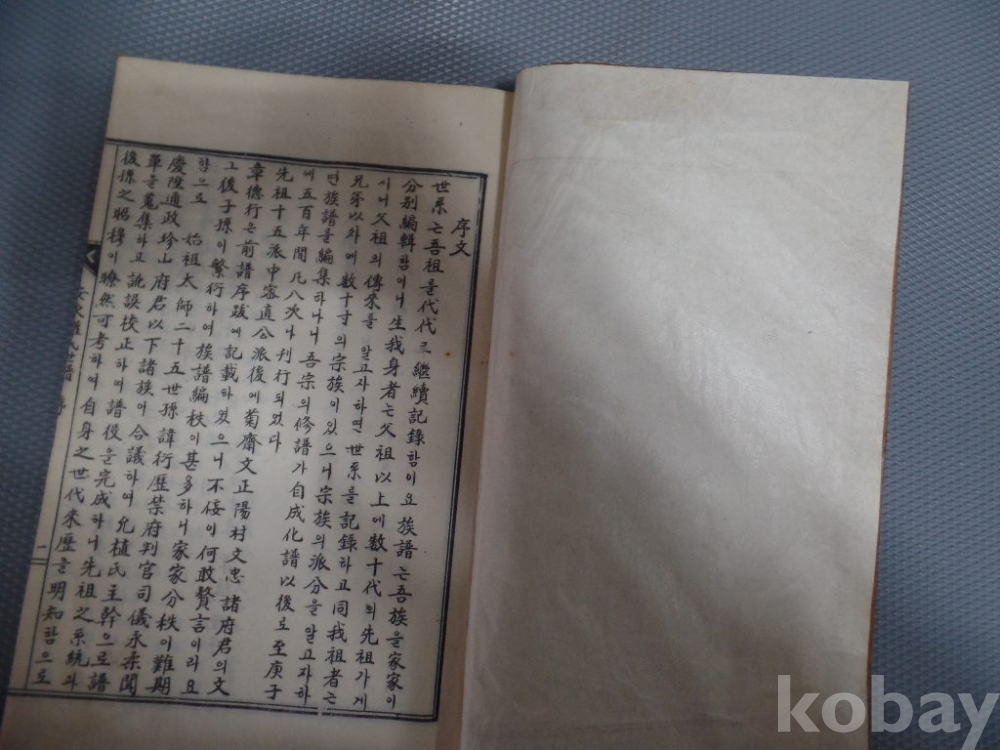 序文
世系는吾祖를代代로繼續記錄함이요族譜는吾族을家家이
分別編輯함이니生我身者는父祖以上에数十代의先祖가게
시어父祖의傳來를알고자하면世系를記錄하고同我祖者는
兄弟以外에数十寸의宗族이있으니宗族의派分을알고자하
면族譜을編集하나니吾宗의修譜가自成化譜以後로至庚子
에五百年間凡八次나刊行되였다
先祖十五派中密直公派後에菊齋文正陽村文忠諸府君의文
章德行은前譜序跋에記載하였으니不佞이何敢贅言이리요
그後子孫이繁衍하여族譜編秩이甚多하니家家分秩이難期
함으로 始祖太師二十五世孫諱衍歷禁府判官司儀永柔聞
慶陞通政珍山府君以下諸族이合議하여允植氏主幹으로譜
單을蒐集하고訛誤校正하며譜役을完成하니先祖之系統과
後孫之昭穆이瞭然可考하여自身之世代來歷을明知함으로
氏譜
一
kobay